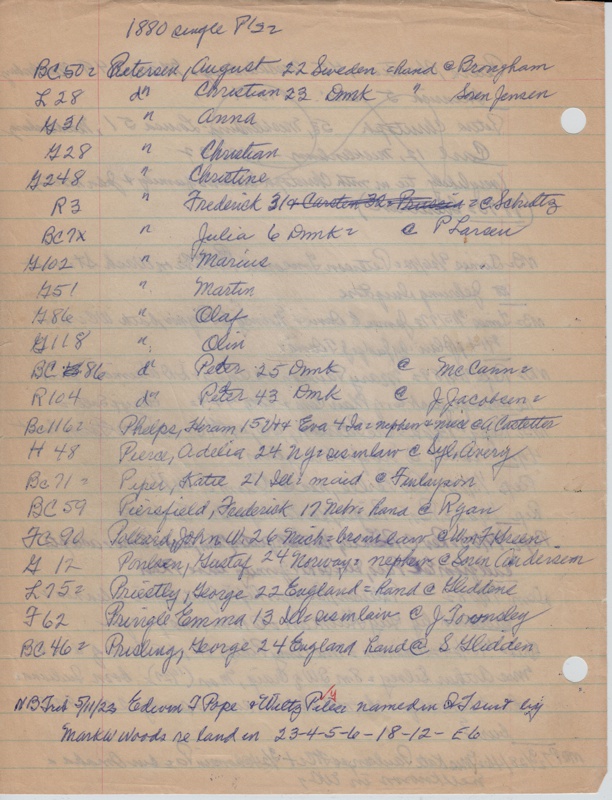 1880 single P's
BC50 = Petersen, August 22 Sweden = hand @ Brougham
L 28 do Christian 23 Dmk " Soren Jensen
G31 " Anna
G28 " Christian
G248 " Christine
R3 " Frederick 31 & Carsten 32 = Prussia = @ Schultz
BC7X " Julia 6 Dmk = @ P Larsen
G102 " Marius
G51 " Martin
G86 " Olaf
G118 " Olin
BC 86 do Peter 25 Dmk @ McCann =
R104 do Peter 43 Dmk @ J Jacobsen =
BC116 = Phelps, Hiram 15 & Eva 4 Ia = nephew & niece @ A Castetter
H 48 Pierce, Adelia 24 Ny = sis in law @ Syl. Avery
BC 71 = Piper, Katie 21 Ill = maid @ Finlayson
BC 59 Piersfield, Frederick 17 Nebr = hand @ Ryan
FC 90 Pollard, John W. 26 Mich = @ Wm F
G 12 Poulsen, Gustaf 24 Norway = nephew @ Soren Andersen
L 75 = Priestly, George 22 England = hand @ Gliddens
F 62 Pringle Emma 13 Ill = sis in law @ J Townsley
BC 46 = Prisling, George 24 England hand @ S Glidden
NB Trib 5/11/22 Edwin T Pope & Wiltz Police named in QT suit by
Mark W Woods re land in 23-4-5-6-18-12-E6